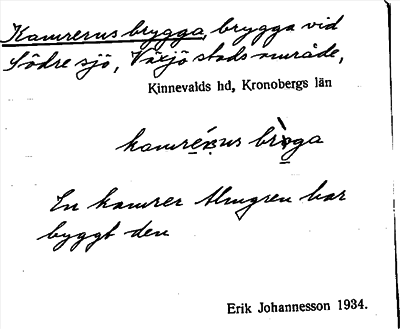 Kamrerus brygga, brygga vid
Södre sjö, Växjö stadsområde,
Kinnevalds hd, Kronobergs län
En kamrer Almgren har
byggt den
Erik Johannesson 1934.